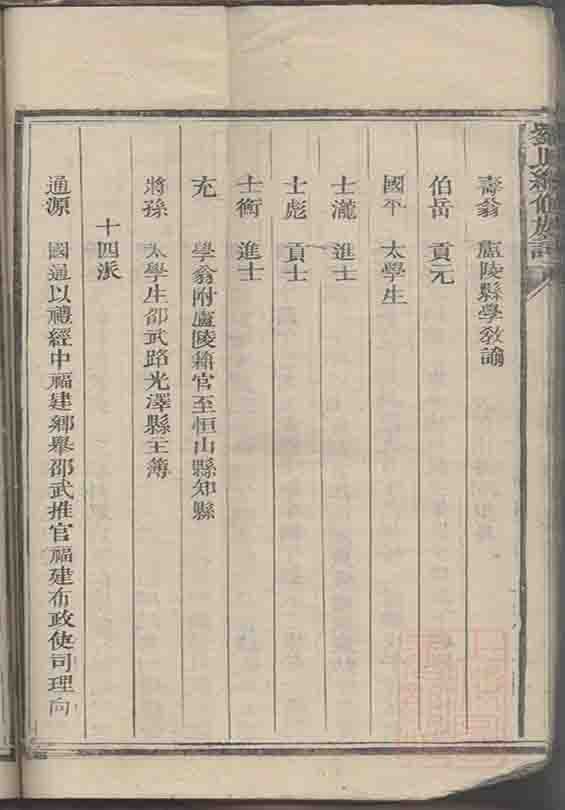 壽翁　廬陵縣學敎諭
伯岳　貢元
國平　太學生
士瀧　進士
士彪　貢士
士衡　進士
充　學翁附廬陵籍官至恒山縣知縣
將孫　太學生邵武路光澤縣主簿
十四派
通源　國通以禮經中福建鄉舉邵武推官福建布政使司理向